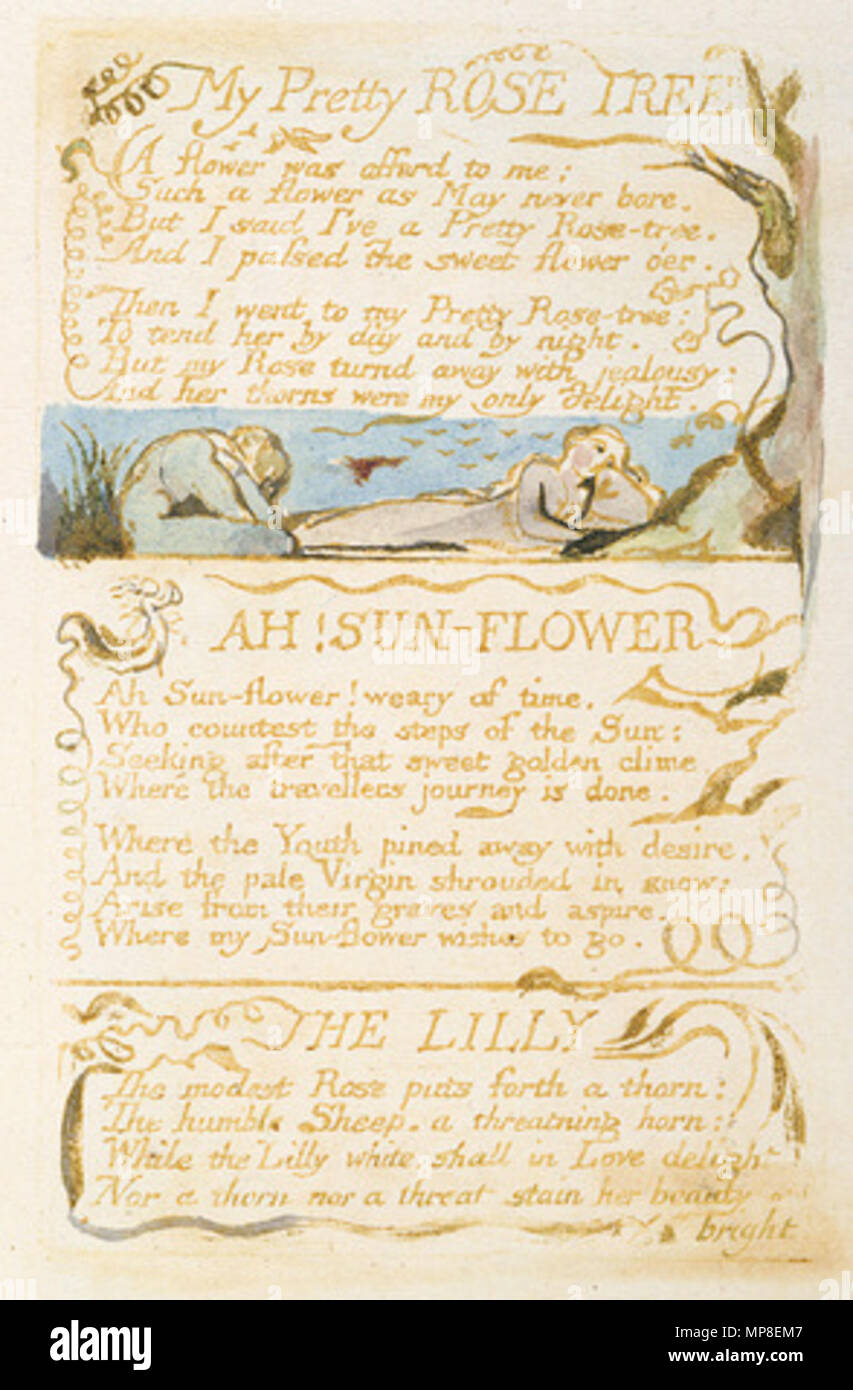 My Pretty ROSE TREE
A flower was offerd to me:
Such a flower as May never bore.
But I said I've a Pretty Rose-tree.
And I passed the sweet flower o'er.
Then I went to my Pretty Rose-tree:
To tend her by day and by night.
But my Rose turnd away with jealousy:
And her thorns were my only delight.
AH! SUN-FLOWER
Ah Sun-flower! weary of time.
Who countest the steps of the Sun:
Seeking after that sweet golden clime
Where the travellers journey is done.
Where the Youth pined away with desire,
And the pale Virgin shrouded in snow:
Arise from their graves and aspire.
Where my Sun-flower wishes to go.
THE LILLY
The modest Rose puts forth a thorn:
The humble Sheep. a threatning horn:
While the Lilly white, shall in Love delight
Nor a thorn nor a threat stain her beauty
bright
a
alamy
alamy stock photo
MP8EM7
www.alamy.com